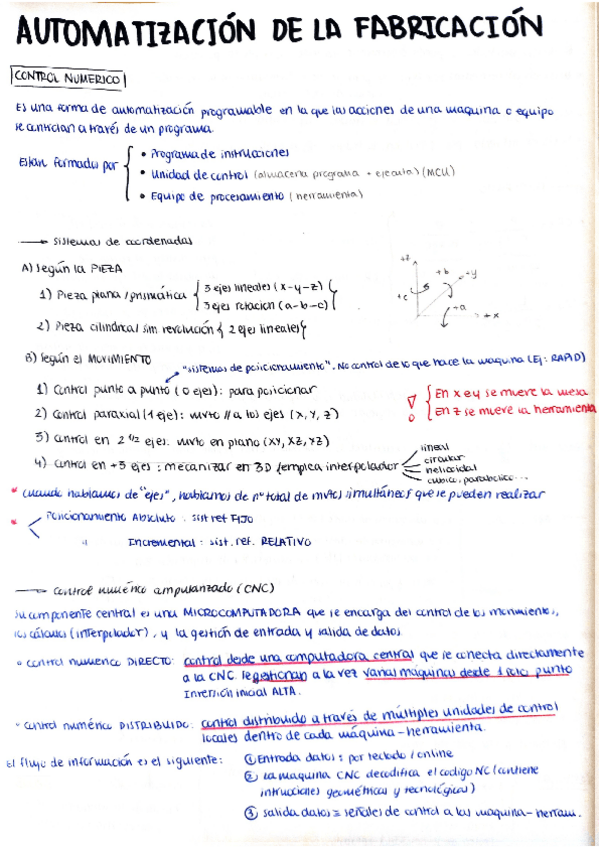 AUTOMATIZACIÓN DE LA FABRICACIÓN
CONTROL NUMERICO
Es una forma de automatización programable en la que las acciones de una maquina o equipo
se controlan a través de un programa.
Estan formados por
• Programa de instrucciones
• Unidad de control (almacena programa + ejecuta) (MCU)
• Equipo de procesamiento (herramienta)
→ Sistemas de coordenadas
A) Según la PIEZA
1) Pieza plana / prismática { 3 ejes lineales (x-y-z)
3 ejes rotacion (a-b-c) {
2) Pieza cilindrica / sim revolución { 2 ejes lineales {
+z +b +y
+c +a +x
B) Según el MOVIMIENTO
"sistemas de posicionamiento". No control de lo que hace la maquina (Ej: RAPID)
1) Control punto a punto (0 ejes): para posicionar
2) Control paraxial (1 eje): mvto // a los ejes (x, y, z)
3) Control en 2 1/2 ejes: mvto en plano (XY, XZ, YZ)
4) Control en +3 ejes: mecanizar en 3D (emplea interpolador
lineal
circular
heliocidal
cubica, parabolica...
En x e y se mueve la mesa
En z se mueve la herramienta
* Cuando hablamos de "ejes", hablamos de nº total de mvtos simultáneos que se pueden realizar
* Posicionamiento Absoluto: sist ref FIJO
" Incremental: sist. ref. RELATIVO
→ Control numérico computarizado (CNC)
Su componente central es una MICROCOMPUTADORA que se encarga del control de los movimientos,
los cálculos (interpolador), y la gestión de entrada y salida de datos.
• Control numerico DIRECTO: control desde una computadora central que se conecta directamente
a la CNC. Se gestionan a la vez varias máquinas desde 1 solo punto
Inversión inicial ALTA.
• Control numérico DISTRIBUIDO: control distribuido a través de múltiples unidades de control
locales dentro de cada máquina-herramienta.
El flujo de información es el siguiente:
① Entrada datos: por teclado / online
② La maquina CNC decodifica el codigo NC (contiene
intrucciones geométricas y tecnológicas)
③ salida datos = señales de control a las maquina-herram.